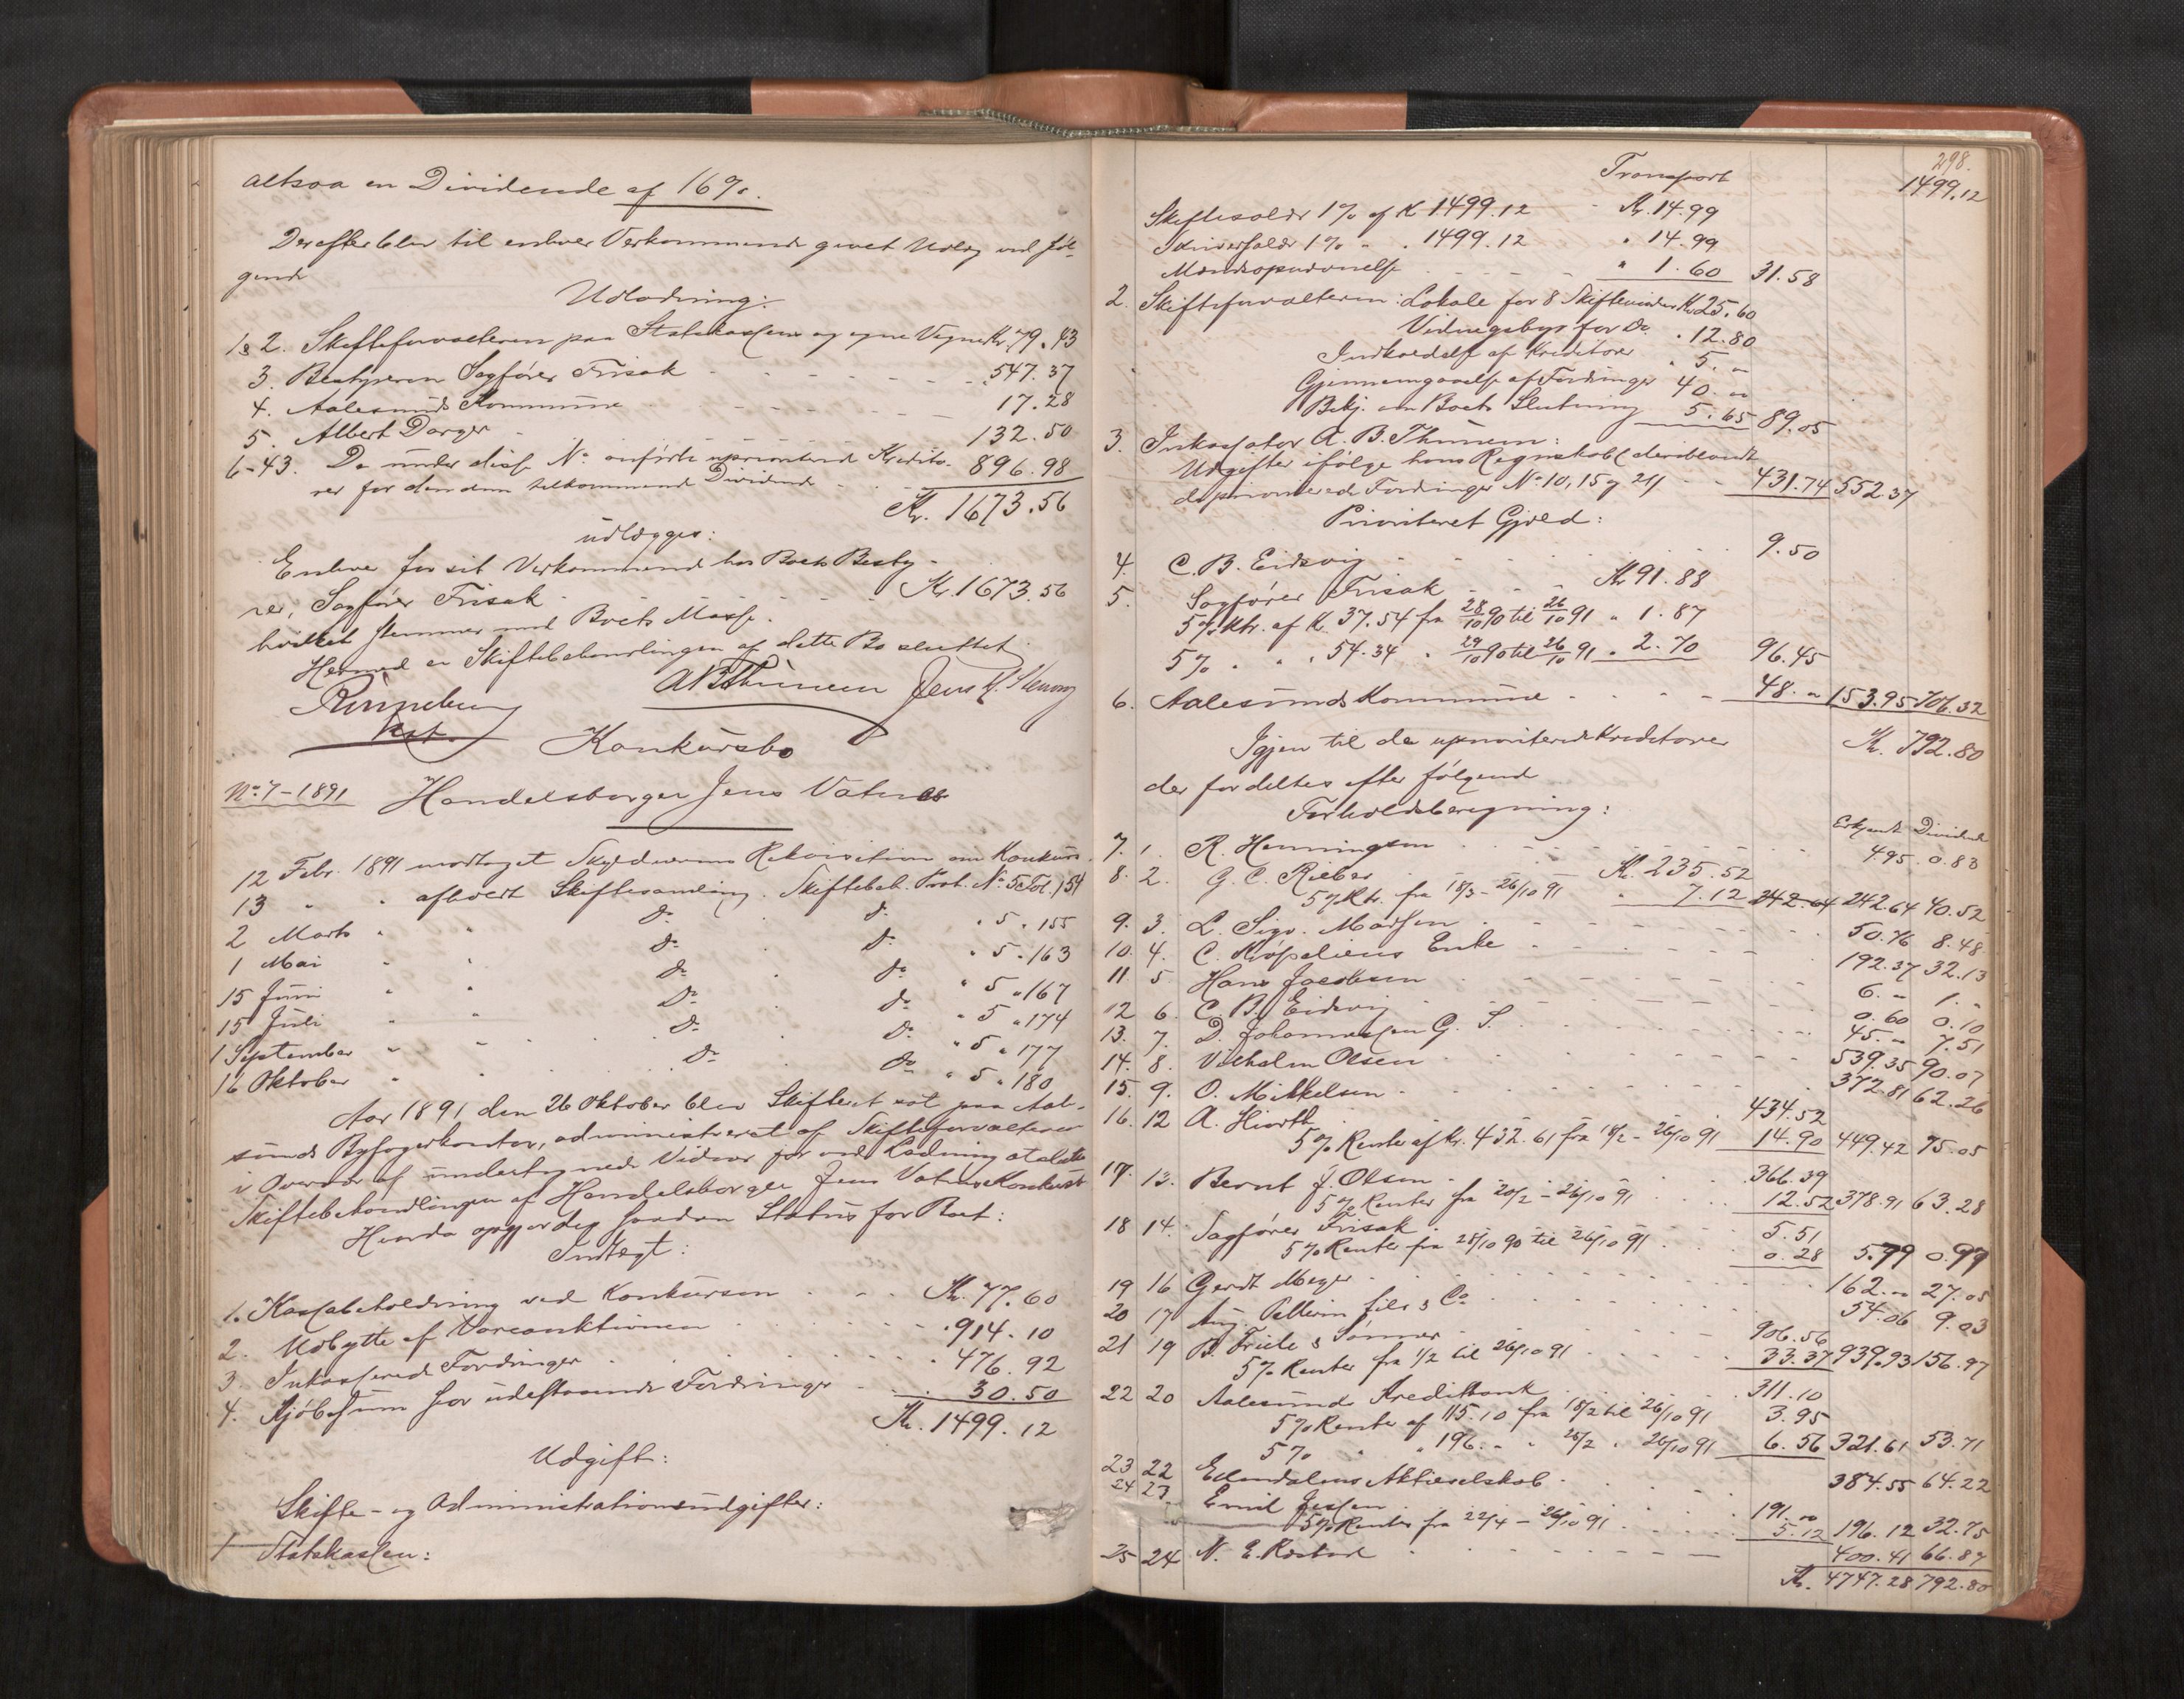 altsaa en Dividende af 16%.
Derefter blev til enhver Vedkommende givet Udlæg ved føl-
gende
Udlodning:
1 & 2. Skifteforvalteren paa Statskassens og egne Vegne Kr. 79.43
3. Bestyreren Sagfører Frisak - - - - 547.37
4. Aalesunds Kommune - - - - 17.28
5. Albert Dorger - 132.50
6-43. De under disse No anførte uprioriterede Kredito-
rer for den dem tilkommende Dividende - - 896.98
Kr. 1673.56
udlægges:
Enhver for sit Vedkommende hos Boets Besty-
rer, Sagfører Frisak - - - Kr. 1673.56
hvilket stemmer med Boets Masse.
Hermed er Skiftebehandlingen af dette Bo sluttet.
Rønneberg ABThünem Jens K.
kst.
Konkursbo
No 7-1891 Handelsborger Jens Vatnes
12 Febr. 1891 modtaget Skyldnerens Rekvisition om Konkurs.
13 " " afholdt Skiftesamling. Skiftebeh. Prot. No 5 Fol. 154
2 Marts " " do. do. " 5 " 155
1 Mai " " do. do. " 5 " 163
15 Juni " " do. do. " 5 " 167
15 Juli " " do. do. " 5 " 174
1 September " " do. do. " 5 " 177
16 Oktober " " do. do. " 5 " 180
Aar 1891 den 26 Oktober blev Skifteret sat paa Aale-
sunds Byfogedkontor, administreret af Skifteforvalteren
i Overvær af undertegnede Vidner for ved Lodning at slutte
Skiftebehandlingen af Handelsborger Jens Vatnes Konkursbo
Herunder opgjordes saadan Status for Boet:
Indtægt:
1. Kassabeholdning ved Konkursen - - - Kr. 77.60
2. Udbytte af Vareauktionen - - - 914.10
3. Inkasserede Fordringer - - - 476.92
4. Kjøbesum for udestaaende Fordringer - - 30.50
Kr. 1499.12
Udgift:
Skifte- og Administrationsudgifter:
1 Statskassen:
298.
Transport 1499.12
Skiftesalær 1% af K 1499.12 - Kr. 14.99
Skriversalær 1% " " 1499.12 " 14.99
Mændsopnævnelse - - - " 1.60 31.58
2. Skifteforvalteren: Lokale for 8 Skiftemøder Kr 25.60
Vidnegebyr for Do. " 12.80
Indkaldelse af Kreditorer " 5. "
Gjennemgaaelse af Fordringer 40. "
Bekj. om Boets Slutning 5.65 89.05
3. Inkassator A. B. Thünem:
Udgifter ifølge hans Regnskab (deriblandt
de prioriterede Fordringer No 10, 15 og 21) - - 431.74 552.37
Prioriteret Gjæld:
4. C. B. Eidsvig - - - - 9.50
5. Sagfører Frisak - - Kr 91.88
5% Rtr. af K. 37.54 fra 28/10 90 til 26/10 91 " 1.87
5% " " " 54.34 " 29/10 90 til 26/10 91 " 2.70 96.45
6. Aalesunds Kommune - - - - 48. " 153.95 706.32
Igjen til de uprioriterede Kreditorer Kr. 792.80
der fordeltes efter følgende
Forholdsberegning:
Erkjendt Dividende
7. 1. R. Henningsen - - - - 4.95 0.83
8. 2. G. C. Rieber - - - Kr. 235.52
5% Rtr. fra 18/3 - 26/10 91 " 7.12 242.64 242.64 40.52
9. 3. L. Sigv. Madsen - - - 50.76 8.48
10. 4. C. Røpeliens Enke - - - 192.37 32.13
11. 5 Hans Jacobsen - - - 6. " 1. "
12 6. C. B. Eidsvig - - - 0.60 0.10
13. 7. D. Johannessen G. S. - - - 45. " 7.51
14. 8. Vilhelm Olsen - - - 539.35 90.07
15. 9. O. Mikkelsen - - - 372.81 62.26
16. 12 A. Hiorth - 434.52
5% Rente af Kr. 432.61 fra 18/2 - 26/10 91 14.90 449.42 75.05
17. 13. Bernt J. Olsen - - 366.39
5% Renter fra 20/2 - 26/10 91 - - 12.52 378.91 63.28
18 14. Sagfører Frisak - 5.51
5% Renter fra 28/10 90 til 26/10 91 - - 0.28 5.79 0.97
19 16 Gerdt Meyer - - - 162. " 27.05
20 17 Aug. Pellerin fils & Co - - - 54.06 9.03
21 19 B. Friele & Sønner - - - 906.56
5% Renter fra 1/2 til 26/10 91 - - 33.37 939.93 156.97
22 20 Aalesunds Kreditbank - 311.10
5% Renter af 115.10 fra 18/2 til 26/10 91 3.95
5% " " 196. - " 25/2 " 26/10 91 6.56 321.61 53.71
23 22 Aktieselskab - - - 384.55 64.22
24 23. Emil Jessen - - 191. "
5% Renter fra 22/4 - 26/10 91 - - 5.12 196.12 32.75
25 24 N. E. Røstad - - - 400.41 66.87
Kr. 4747.28 792.80